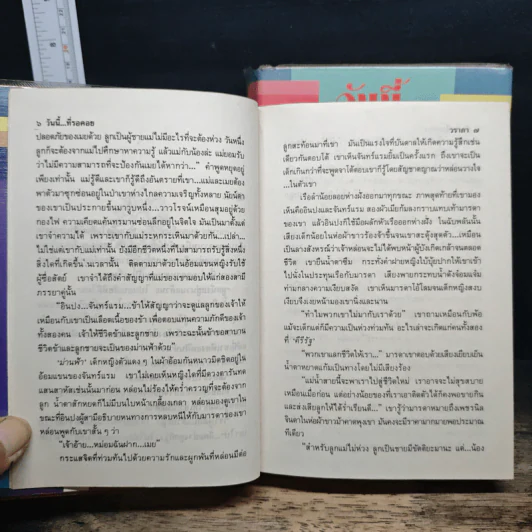 ๖ วันนี้...ที่รอคอย
ปลอดภัยของเมยด้วย ลูกเป็นผู้ชายแม่ไม่มีอะไรที่จะต้องห่วง วันหนึ่ง
ลูกก็จะต้องจากแม่ไปศึกษาหาความรู้ แล้วแม่กับน้องล่ะ แม่ยอมรับ
ว่าไม่มีความสามารถที่จะป้องกันเมยได้หากว่า..." คำพูดหยุดอยู่
เพียงเท่านั้น แม่รู้ดีและเขาก็รู้ดีถึงอันตรายที่เขา...แม่และเมยต้อง
พาตัวมาซุกซ่อนอยู่ในป่าเขาห่างไกลความเจริญทั้งหลาย นัยน์ตา
ของเขาเป็นประกายขึ้นมาวูบหนึ่ง...วาวโรจน์เหมือนสุมอยู่ด้วย
กองไฟ ความเคียดแค้นทรมานซ่อนลึกอยู่ในจิตใจ มันเป็นมาตั้งแต่
เขาจำความได้ เพราะเขากับแม่ระหกระเหินมาด้วยกัน...เปล่า...
ไม่ใช่แต่เขากับแม่เท่านั้น ยังมีอีกชีวิตหนึ่งที่ไม่สามารถรับรู้สิ่งหนึ่ง
สิ่งใดที่เกิดขึ้นในเวลานั้น ติดตามมาด้วยในอ้อมแขนหญิงรับใช้
ผู้ซื่อสัตย์ เขาจำได้ถึงคำสัญญาที่แม่ของเขามอบให้แก่สองสามี
ภรรยาคู่นั้น
"อินปง...จันทร์แรม...ข้าให้สัญญาว่าจะดูแลลูกของเจ้าให้
เหมือนกับเขาเป็นเลือดเนื้อของข้า เพื่อตอบแทนความภักดีของเจ้า
ทั้งสองคน เจ้าให้ชีวิตข้าและลูกชาย เพราะฉะนั้นข้าขอสาบาน
ชีวิตข้าและลูกชายจะเป็นของม่านฟ้าด้วย"
'ม่านฟ้า' เด็กหญิงตัวแดง ๆ ในผ้าอ้อมกันหนาวมิดชิดอยู่ใน
อ้อมแขนของจันทร์แรม เขาไม่เคยเห็นหญิงใดที่มีดวงอารันทด
แสนสาหัสเช่นนั้นมาก่อน หล่อนไม่ร้องไห้คร่ำครวญที่จะต้องจาก
ลูก น้ำตาสักหยดก็ไม่มีบนใบหน้าเกลี้ยงเกลา หล่อนมองดูเขาใน
ขณะที่อินปงผู้สามีอธิบายหนทางการหลบหนีให้กับมารดาของเขา
หล่อนพูดกับเขาสั้น ๆ ว่า
"เจ้าอ้าย...หม่อมฉันฝาก...เมย"
กระแสจิตที่ท่วมท้นไปด้วยความรักและผูกพันที่หล่อนมีต่อ
วราภา ๗
ลูกสะท้อนมาที่เขา มันเป็นแรงใจที่บันดาลให้เกิดความรู้สึกเช่น
เดียวกันตอบโต้ เขาเห็นจันทร์แรมยิ้มเป็นครั้งแรก ถึงเขาจะเป็น
เด็กเกินกว่าที่จะพูดจาโต้ตอบเขาก็รู้โดยสัญชาตญาณว่าหล่อนวางใจ
...ในตัวเขา
เรือลำน้อยลอยห่างฝั่งออกมาทุกขณะ ภาพสุดท้ายที่เขามอง
เห็นคืออินปงและจันทร์แรม สองผัวเมียก้มลงกราบแทบเท้ามารดา
ของเขา แล้วอินปงก็ใช้มือผลักหัวเรือออกห่างฝั่ง ในฉับพลันนั้น
เสียงเด็กน้อยในห่อผ้าขาวร้องจ้าขึ้นจนเขาสะดุ้งสุดตัว...เหมือน
เป็นลางสังหรณ์ว่าเจ้าหล่อนจะไม่ได้พบหน้าผู้บังเกิดเกล้าจนตลอด
ชีวิต เขายืนน้ำตาซึม กระทั่งคำฝายหญิงใบ้ปุ้ยปากให้เขาเข้า
ไปนั่งในประทุนเรือกับมารดา เสียงพายกระทบน้ำดังจ๋อมแจ๋ม
ท่ามกลางความเงียบสงัด เขาเห็นมารดาไอ้โลมจนเด็กหญิงสงบ
เงียบจึงเงยหน้ามองเขานิ่งและนาน
"ทำไมพวกเขาไม่มากับเราด้วย" เขาถามเหมือนกับพ้อ
แม้จะเด็กแต่ก็มีความเป็นห่วงท่วมท้น อะไรเล่าจะเกิดแก่คนทั้งสอง
ที่ 'คีรีรัฐ'
"พวกเขาแลกชีวิตให้เรา..." มารดาเขาตอบด้วยเสียงเยียบเย็น
น้ำตาหยาดแก้มเป็นทางโดยไม่มีเสียงร้อง
"แม่น้ำสายนี้จะพาเราไปสู่ชีวิตใหม่ เราอาจจะไม่สุขสบาย
เหมือนเมื่อก่อน แต่อย่างน้อยของที่เราเอาติดตัวได้ก็คงพอขายกิน
และส่งเสียลูกให้ได้ร่ำเรียนดี..." เขารู้ว่ามารดาหมายถึงเพชรนิล
จินดาในห่อผ้าขาวม้าคาดพุงเขา มันคงจะมีราคามากมายพอประมาณ
ทีเดียว
"สำหรับลูกแม่ไม่ห่วง ลูกเป็นชายมีขัตติยะมานะ แต่...น้อง
วันนี้